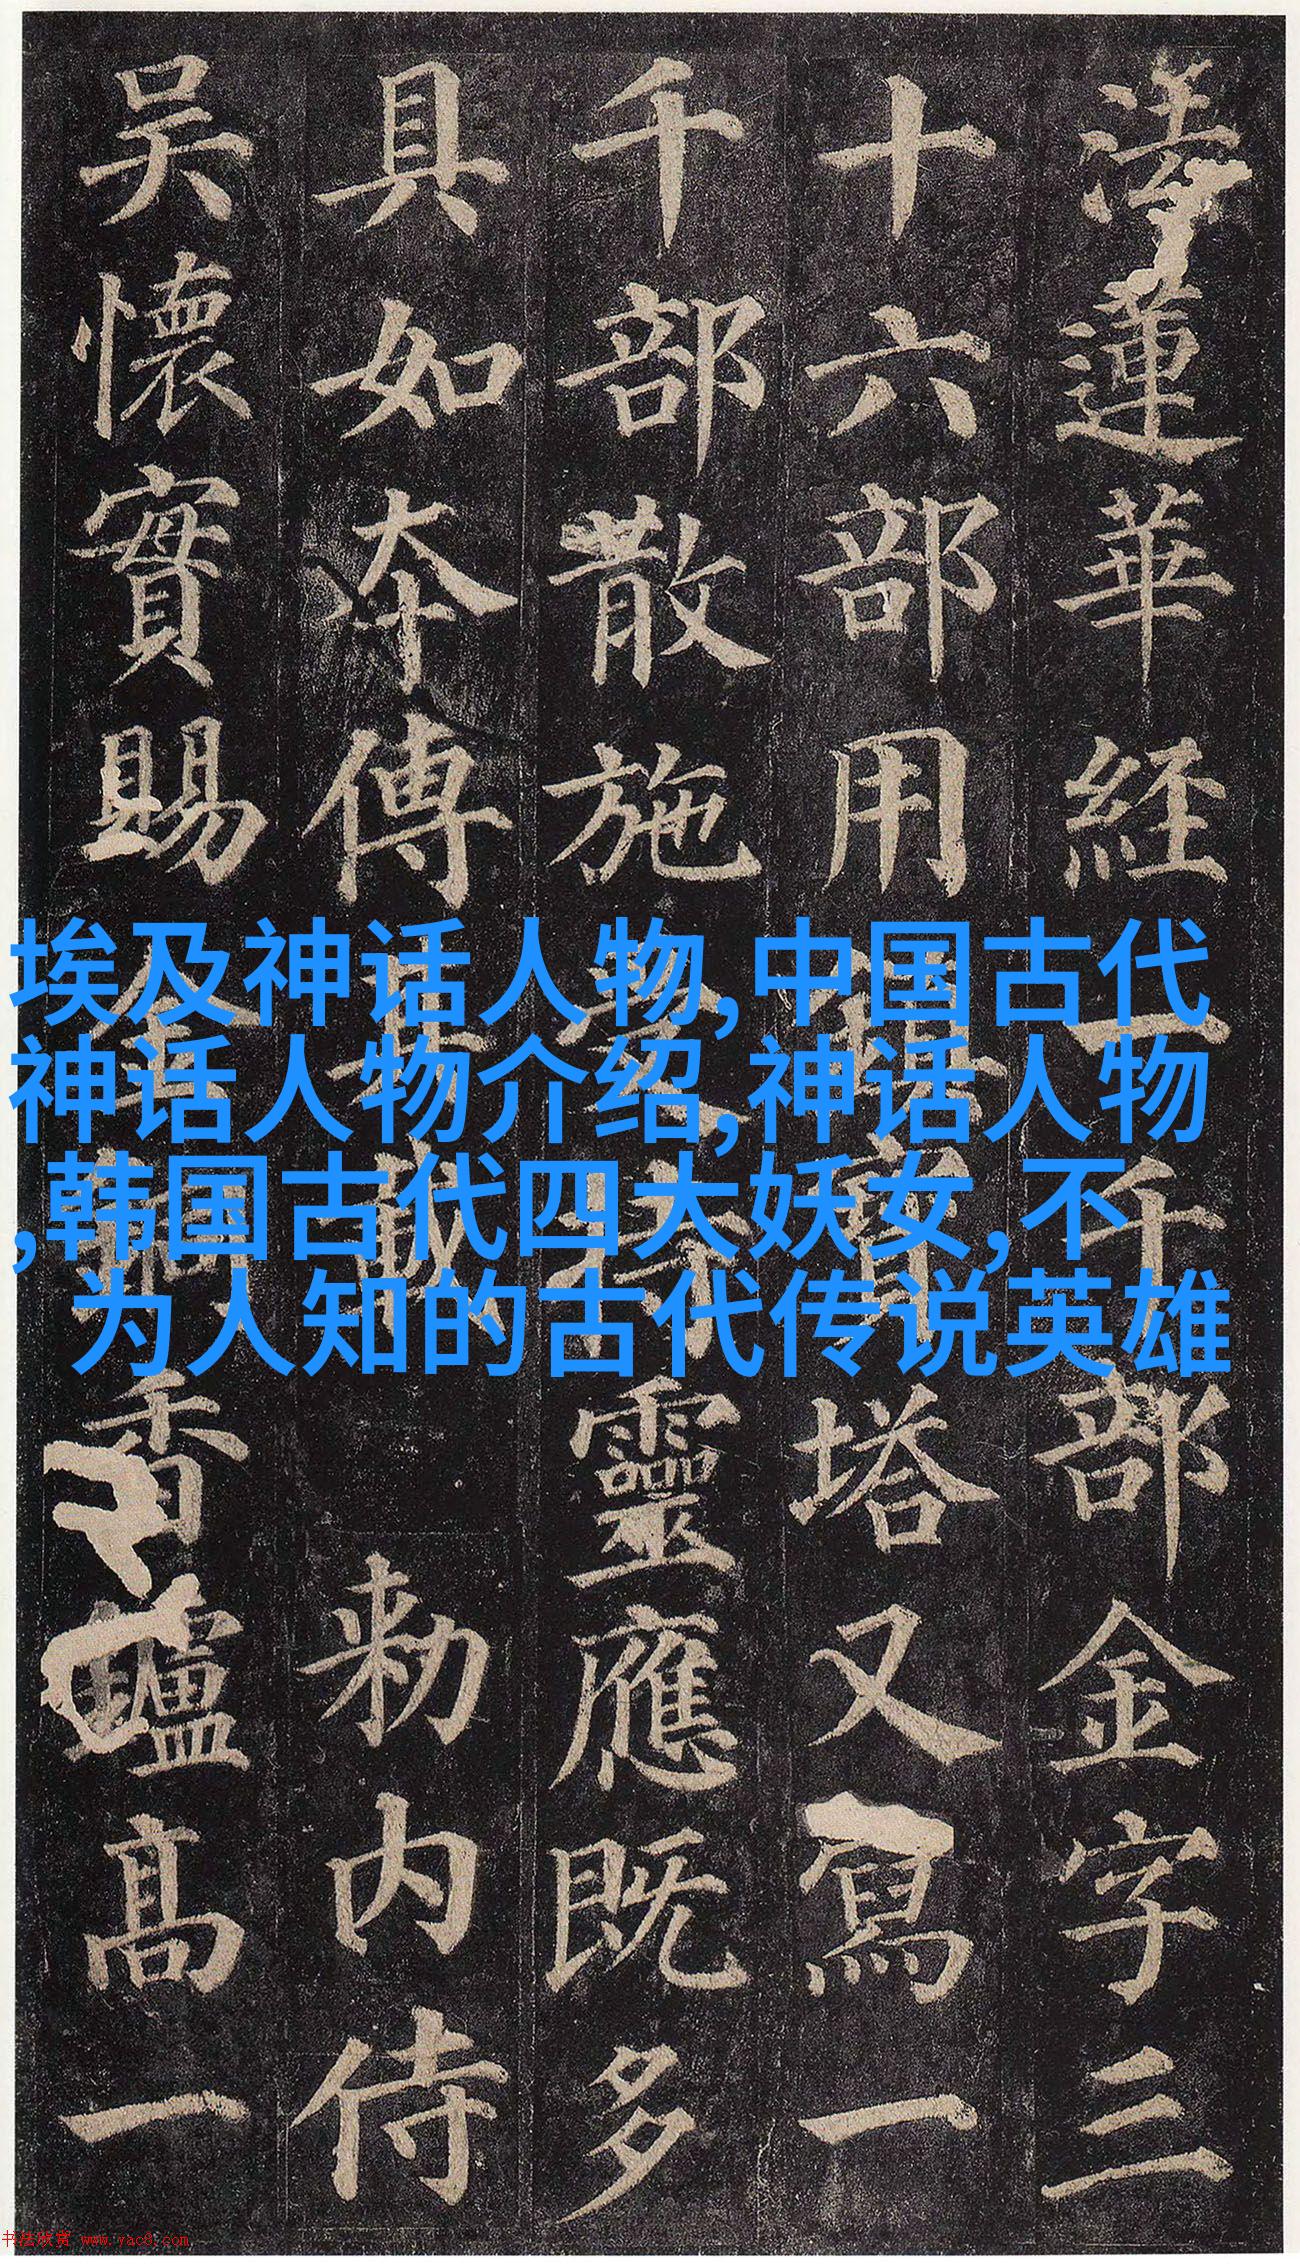 法蓮華經一千部金字三
十六部用鎮寶塔又寫一
千部散施受持靈應既多
具如本傳其載勅内侍
吳懷實賜金銅香爐高一
埃及神话人物,中国古代
神话人物介绍,神话人物
,韩国古代四大妖女,不
为人知的古代传说英雄
书法欣赏 www.yac8.com